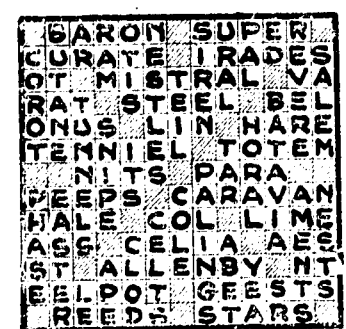 BARON SUPER
CURATE IRADES
OT MISTRAL VA
RAT STEEL BEL
ONUS LIN HARE
TENNIEL TOTEM
NITS PARA
PEEPS CARAVAN
HALE COL LIME
ASS CELIA AES
ST ALLENBY NT
EELPOT GEESTS
REEDS STARS